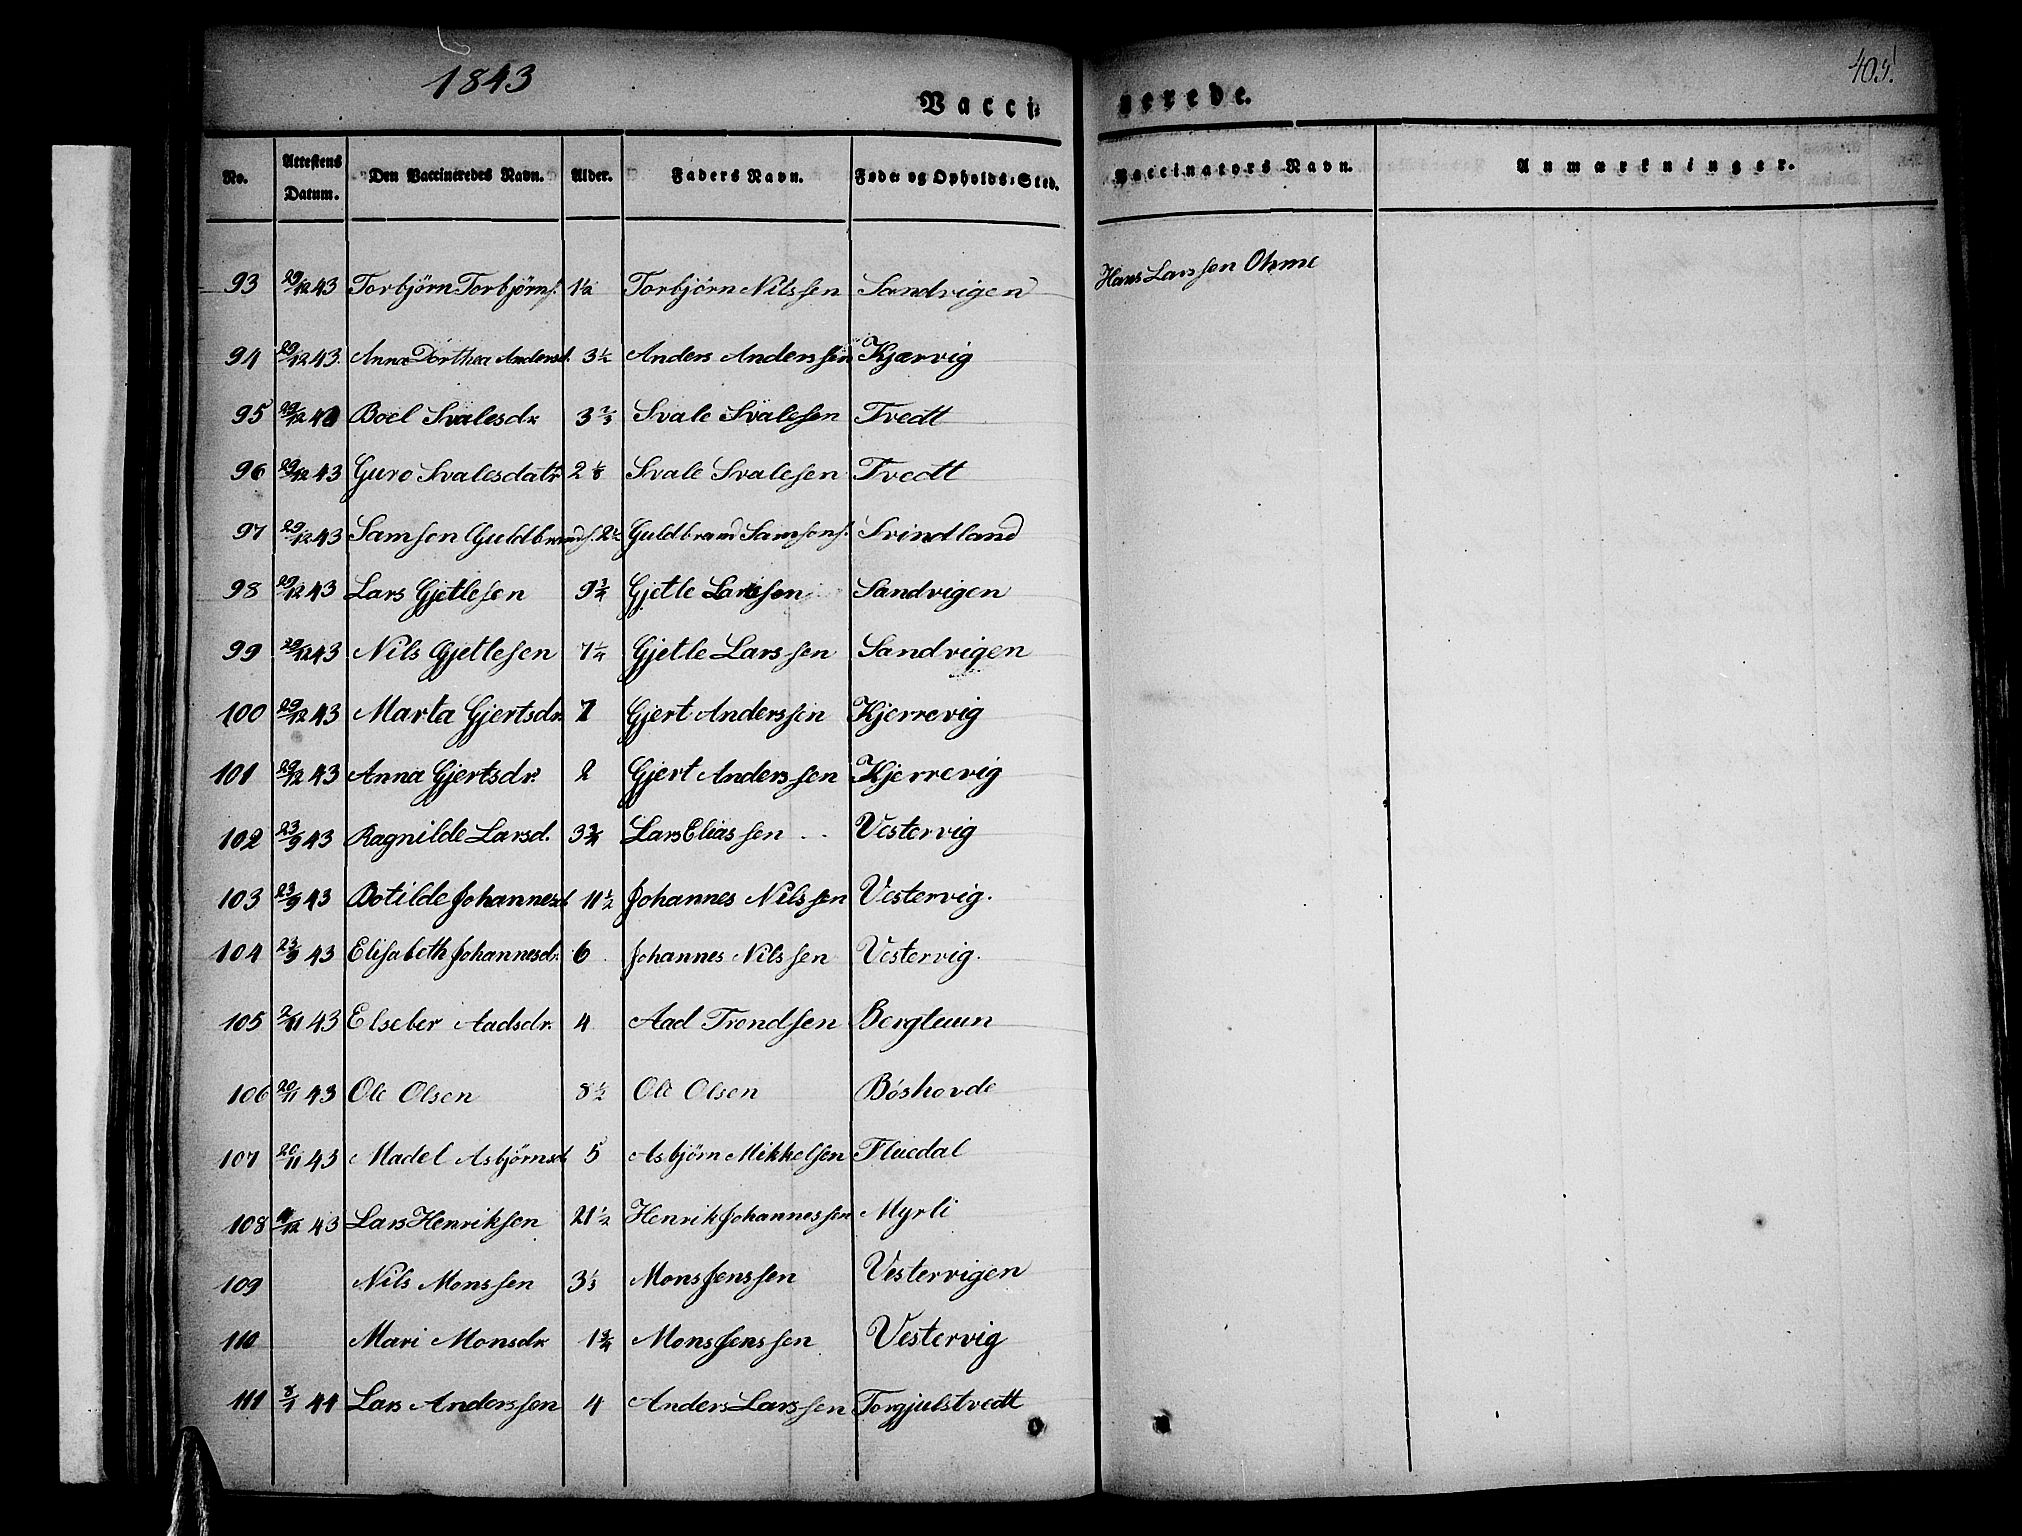 1843
405!
Vaccinerede.
No. Attestens Datum. Den Vaccineredes Navn. Alder. Faders Navn. Føde- og Opholds-Sted. Vaccinators Navn. Anmærkninger.
93 29/12 43 Torbjörn Torbjörns. 1½ Torbjörn Nilssen Sandvigen Hans Larssen Ohme
94 29/12 43. Anna Dorthea Andersd. 3½ Anders Anderssen Kjærvig
95 29/12 43 Boel Svalesdr. 3 Svale Svalesen Tvedt
96 29/12 43 Guro Svalesdatr 2 Svale Svalesen Tvedt
97 29/12 43 Samsen Guldbrands. 2½ Guldbrand Samsens. Svindland
98 29/12 43 Lars Gjetlesen 9¾ Gjetle Larssen Sandvigen
99 29/12 43 Nils Gjetlesen 7¼ Gjetle Larssen Sandvigen
100 29/12 43 Marta Gjertsdr. 7 Gjert Anderssen Kjerrevig
101 29/12 43 Anna Gjertsdr. 2 Gjert Anderssen Kjerrevig
102 23/9 43 Ragnilde Larsd. 3¾ Lars Eliassen Vestervig
103 23/9 43 Botilde Johannesd 11½ Johannes Nilssen Vestervig.
104 23/9 43 Elisabeth Johannesd. 6 Johannes Nilssen Vestervig.
105 2/11 43 Elseber Aadsdr. 4 Aad Trondsen Bergtuun
106 20/11 43 Ole Olsen 8½ Ole Olsen Böshovde
107 20/11 43 Madel Asbjörnsd 5 Asbjörn Mikkelsen Fluedal
108 11/12 43 Lars Henriksen 21½ Henrik Johannessen Myrli
109 Nils Monssen 3⅓ Mons Jenssen Vestervigen
110 Mari Monsdr. 1¾ Mons Jenssen Vestervig
111 8/1 44 Lars Anderssen 4 Anders Larssen Torgjulstvedt